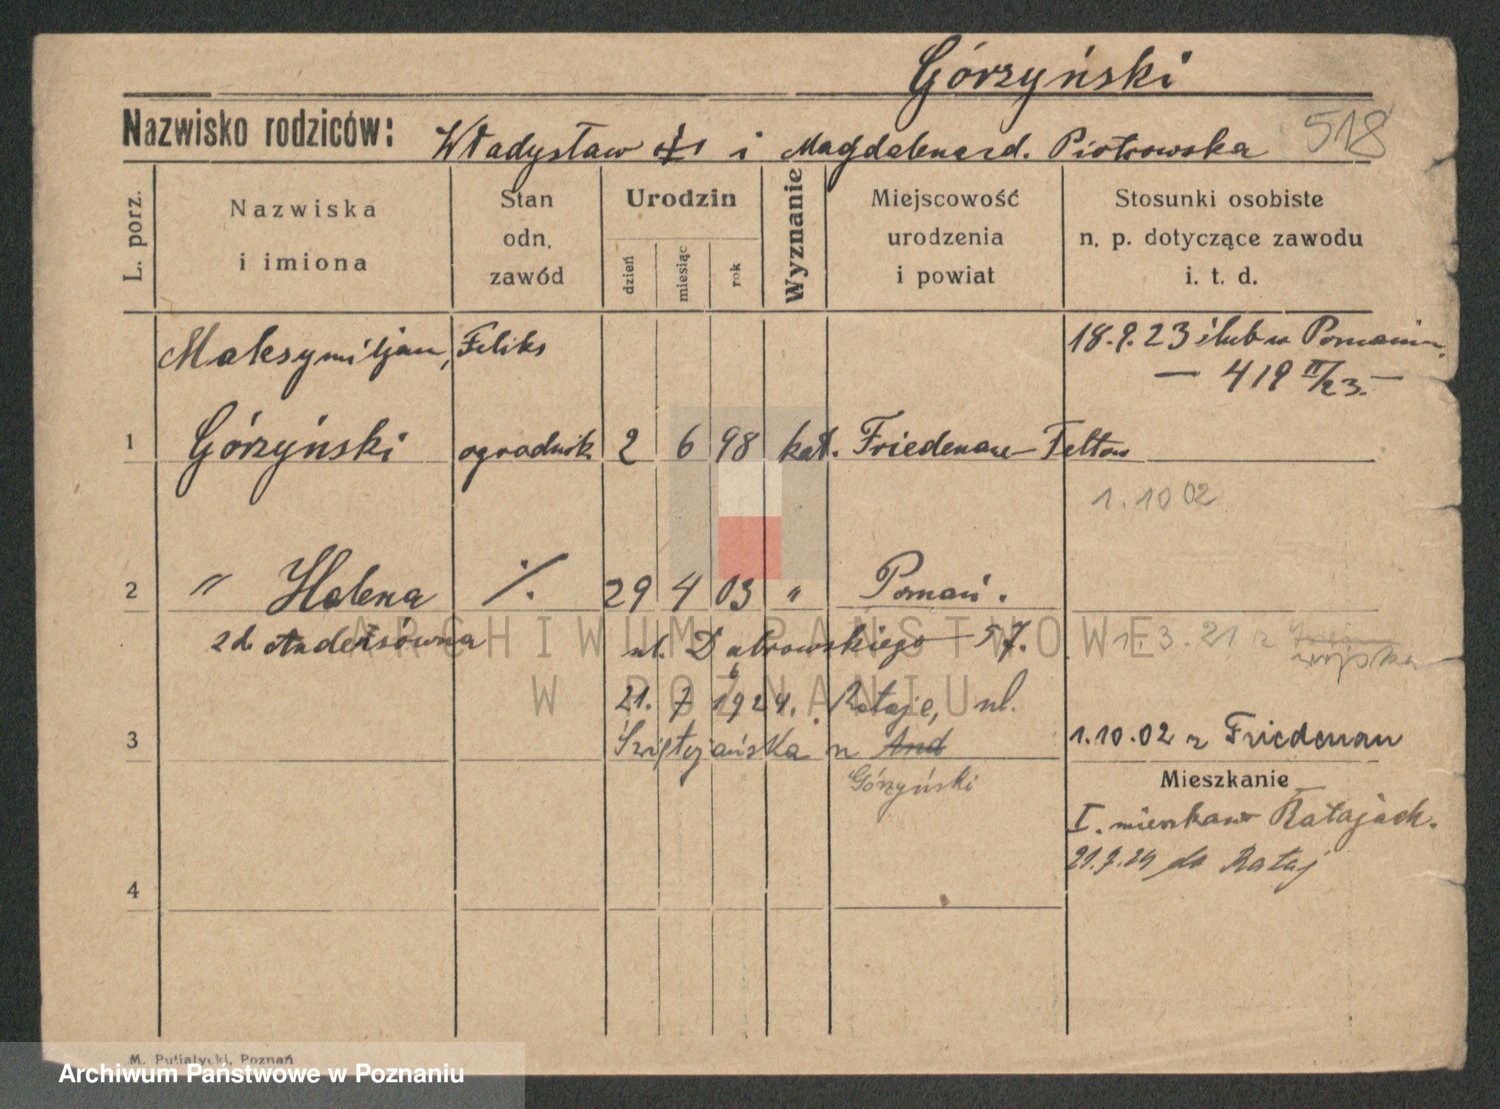 Górzyński
Nazwisko rodziców: Władysław i Magdalena zd. Piotrowska 518
L. porz.
Nazwiska
i imiona
Stan
odn.
zawód
Urodzin
dzień
miesiąc
rok
Wyznanie
Miejscowość
urodzenia
i powiat
Stosunki osobiste
n. p. dotyczące zawodu
i. t. d.
Maksymiljan, Feliks
18.9.23 ślub w Poznaniu
— 419 II/23. —
1 Górzyński ogrodnik 2 6 98 kat. Friedenau-Teltow
1.10 02
2 " Helena ./. 29 4 03 " Poznań.
zd. Andersówna
ul. Dąbrowskiego 57.
1.3.21 z
wojska
21. 7 1924. Rataje, ul.
3 Świętojańska u And
1.10.02 z Friedenau
Górzyński
Mieszkanie
I. mieszkanie Ratajach.
21.7.24 do Rataj
4
M. Putiatycki, Poznań
ARCHIWUM PAŃSTWOWE
W POZNANIU
Archiwum Państwowe w Poznaniu